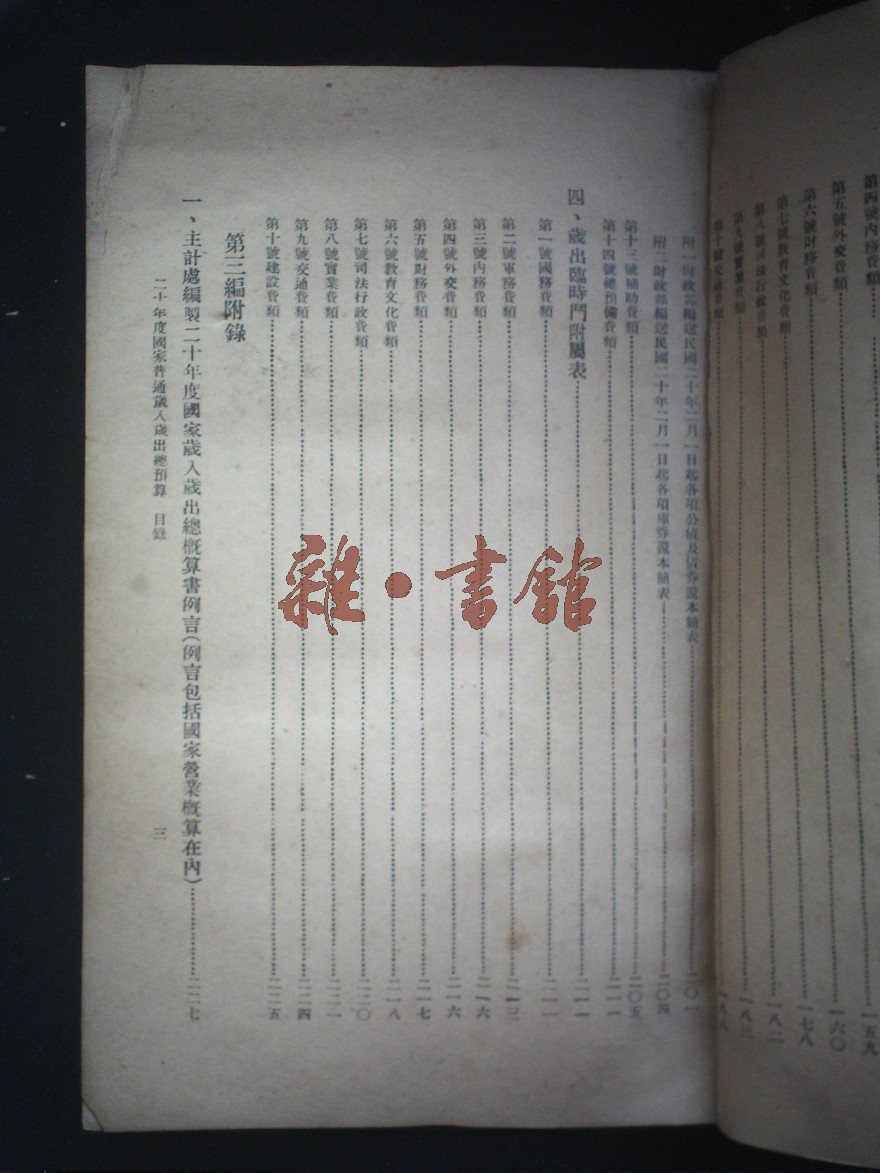 第四號內務費類……一五九
第五號外交費類……一六〇
第六號財務費類……一七八
第七號教育文化費類……一八二
第八號司法行政費類
第九號實業費類……一八三
第十號交通費類……一八八
附一財政部編送民國二十年二月一日起各項公債及債券還本簡表……二〇一
附二財政部編送民國二十年二月一日起各項庫券還本簡表……二〇四
第十三號補助費類……二〇五
第十四號總預備費類……二一一
四、歲出臨時門附屬表……二一一
第一號國務費類……二一一
第二號軍務費類……二一三
第三號內務費類……二一六
第四號外交費類……二一六
第五號財務費類……二一七
第六號教育文化費類……二一八
第七號司法行政費類……二二〇
第八號實業費類……二二一
第九號交通費類……二二四
第十號建設費類……二二五
第三編附錄
一、主計處編製二十年度國家歲入歲出總概算書例言(例言包括國家營業概算在內)……二二七
二十年度國家普通歲入歲出總預算 目錄 三
雜·書館